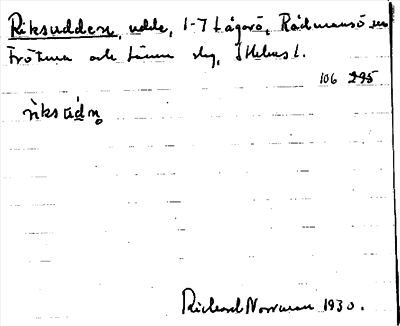 Riksudden, udde, 1-7 Lågarö, Rådmansö sn
Frötuna och Länna skg, Sthlms l.
106 295
rikstädn
Richard Norrman 1930.